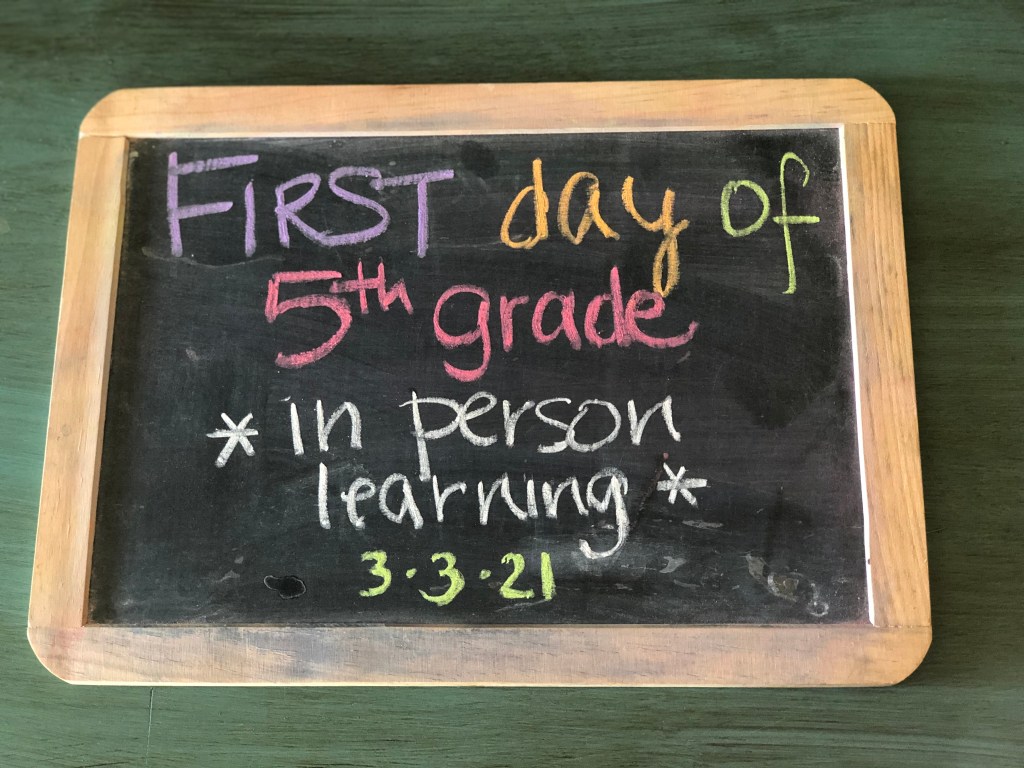 FIRST day of
5th grade
*in person
learning*
3.3.21